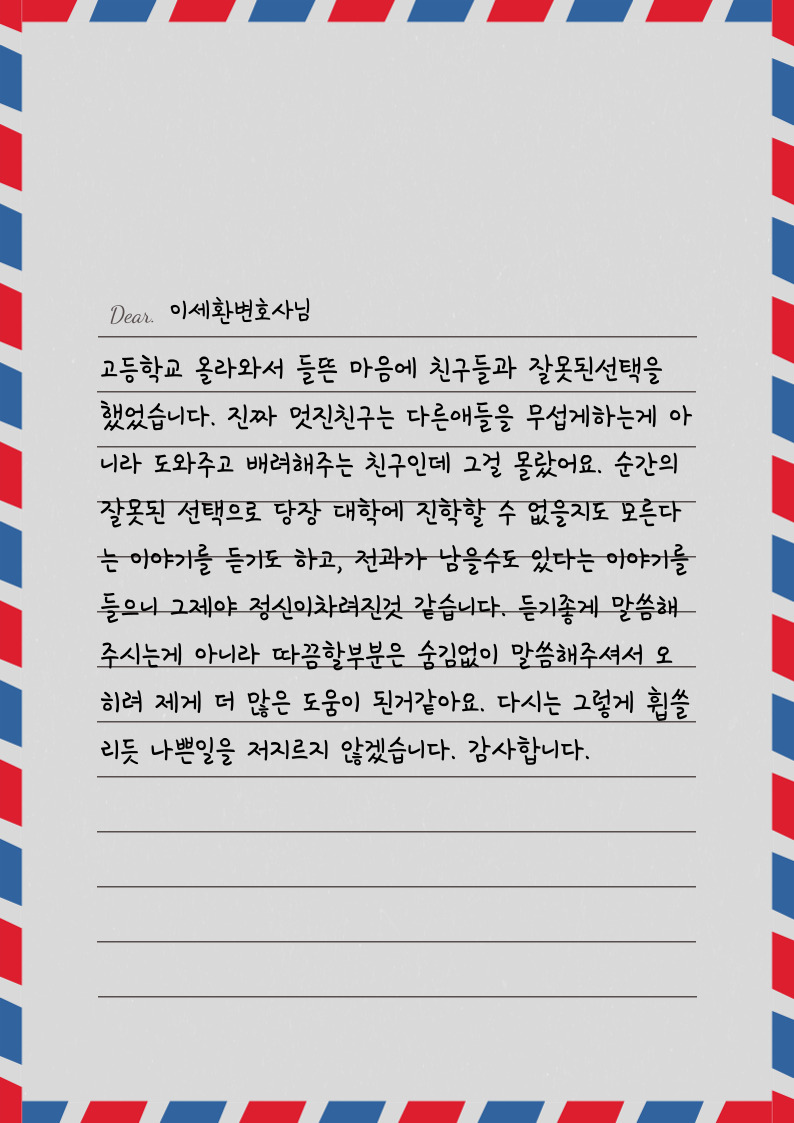 Dear. 이세환변호사님
고등학교 올라와서 들뜬 마음에 친구들과 잘못된선택을
했었습니다. 진짜 멋진친구는 다른애들을 무섭게하는게 아
니라 도와주고 배려해주는 친구인데 그걸 몰랐어요. 순간의
잘못된 선택으로 당장 대학에 진학할 수 없을지도 모른다
는 이야기를 듣기도 하고, 전과가 남을수도 있다는 이야기를
들으니 그제야 정신이차려진것 같습니다. 듣기좋게 말씀해
주시는게 아니라 따끔할부분은 숨김없이 말씀해주셔서 오
히려 제게 더 많은 도움이 된거같아요. 다시는 그렇게 휩쓸
리듯 나쁜일을 저지르지 않겠습니다. 감사합니다.